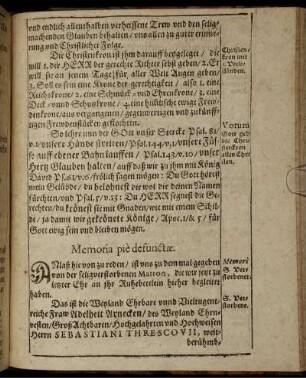 und endlich allenthalben verheissene Trew und den selig-
machenden Glauben behalten / uns allen zu guter erinne-
rung und Christlicher Folge.
Die Christenkron ist jhm darauff beygeleget / die
will 1. der HERR der gerechte Richter selbst geben / 2. Er
will sie an jenem Tage / für aller Welt Augen geben /
3. Soll es sein eine Krone der gerechtigkeit / also 1. eine
Reichskrone / 2. eine Schmuck- und Ehrenkrone / 3. eine
und Schutzkrone / 4. eine himlische ewige Frew-
denkrone / aus vergangenen / gegenwertigen und zukünff-
tigen Frewdenstücken geflochten.
So lehre nun der GOtt unser Stercke Psal. 81/
v. 1. unsere Hände streiten / Ps. 144 / v. 1. unsere Füs-
se auff ebener Bahn lauffen / Psal. 143 / v. 10 / unser
Hertz Glauben halten / auff daß wir zu jhm mit König
David Psal. v. 6 / frölich sagen mögen: Du Gott hörest
mein Gelübde / du belohnest die wol die deinen Namen
fürchten / und Psal. 5 / v. 13: Du HERR segnest die Ge-
rechten / du krönest sie mit Gnaden / wie mit einem Schil-
de / ja damit wir gekrönete Könige / Apoc. 1 & 5 / für
Gott ewig sein und bleiben mögen.
Christen-
Votum
Memoria piè defunctæ.
Memori
Anlaß hie von zu reden / ist uns zu dem mal gegeben
von der seligverstorbenen Matron / die wir jetzt zu
letzter Ehr an jhr Ruhebettlein hieher begleitet
haben.
Das ist die Weyland Ehrbare und Vieltugent-
reiche Fraw Adelheit Arnecken / des Weyland Ehrn-
vesten / GroßAchtbaren / Hochgelahrten und Hochweisen
Herrn SEBASTIANI THRESCOVII, weit-
berühmb-